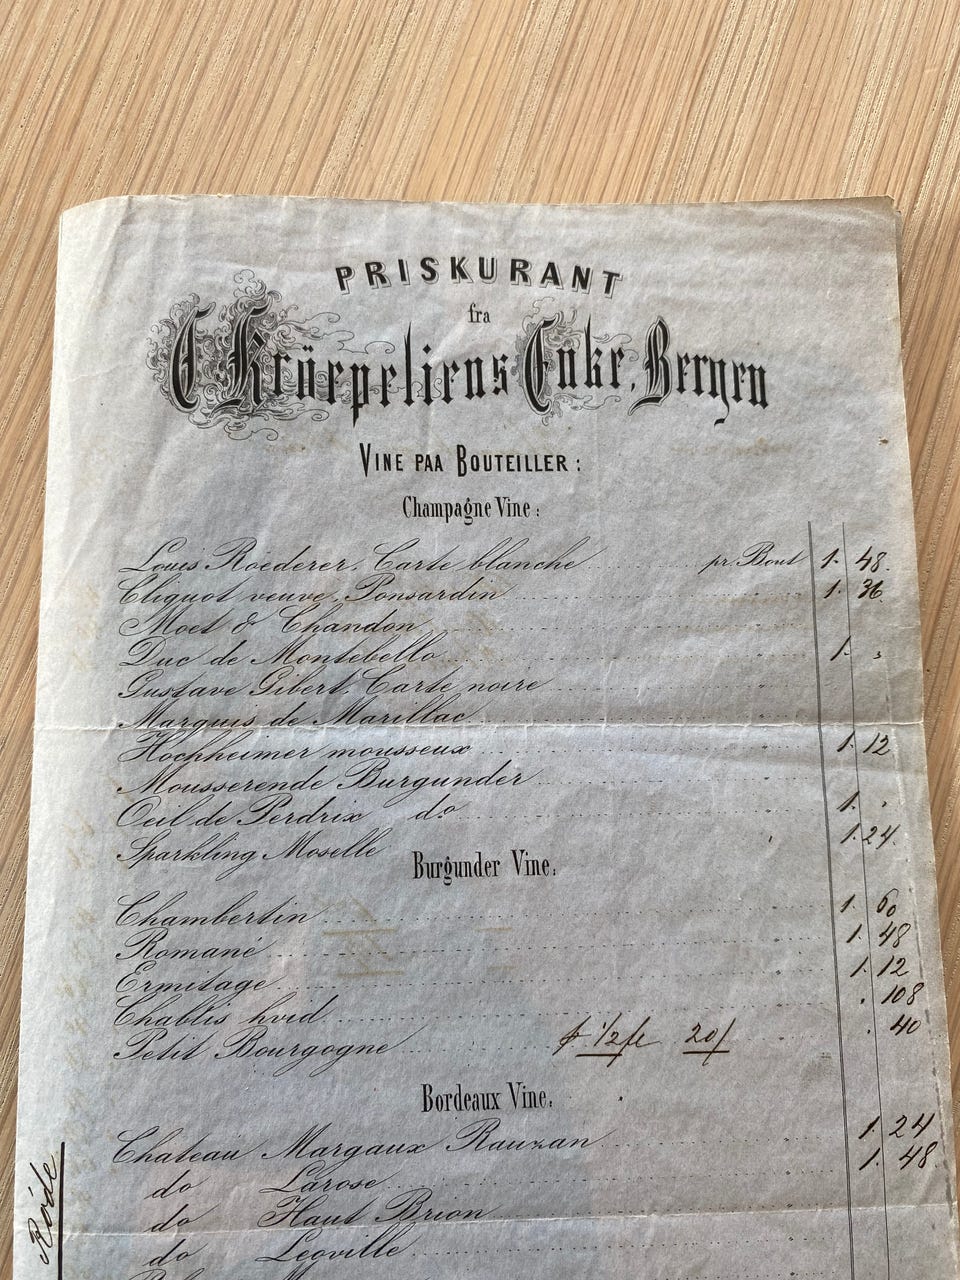 PRISKURANT
fra
C. Kröepeliens Enke, Bergen
VINE PAA BOUTEILLER:
Champagne Vine:
Louis Roederer, Carte blanche pr. Bout 1. 48.
Cliquot veuve, Ponsardin 1. 36
Moet & Chandon
Duc de Montebello 1. „
Gustave Gibert, Carte noire
Marquis de Marillac
Hochheimer mousseux 1. 12
Mousserende Burgunder
Oeil de Perdrix do 1. „
Sparkling Moselle 1. 24.
Burgunder Vine.
Chambertin 1. 60
Romané 1. 48
Ermitage 1. 12
Chablis hvid . 108
Petit Bourgogne 1/2 fl 20/ . 40
Bordeaux Vine.
Chateau Margaux Rauzan 1. 24
do Larose 1. 48
do Haut Brion
do Leoville
Røde